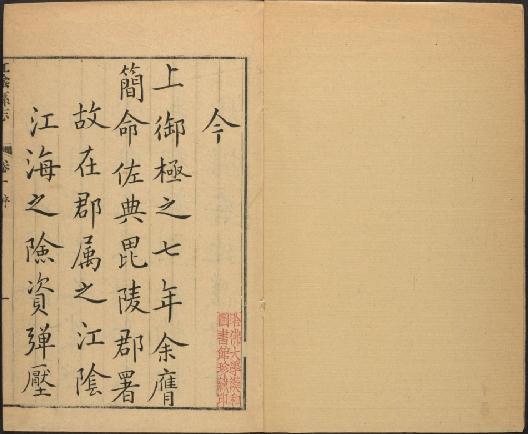 今
上御極之七年余膺
簡命佐典毘陵郡署
故在郡属之江陰
江海之險資彈壓
江陰縣志
卷一序
一
哈佛大學漢和
圖書館珍藏印